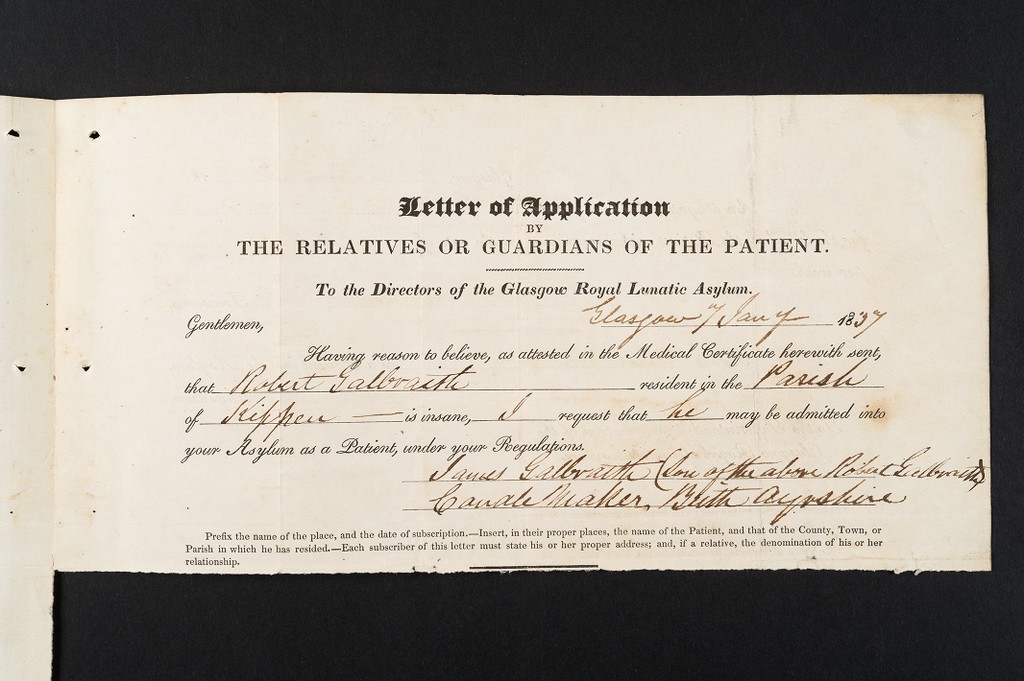 Letter of Application
BY
THE RELATIVES OR GUARDIANS OF THE PATIENT.
To the Directors of the Glasgow Royal Lunatic Asylum.
Glasgow 7 Jany 1837
Gentlemen,
Having reason to believe, as attested in the Medical Certificate herewith sent,
that Robert Galbraith resident in the Parish
of Kippen — is insane, I request that he may be admitted into
your Asylum as a Patient, under your Regulations.
James Galbraith (Son of the above Robert Galbraith)
Candle Maker, Beith Ayrshire
Prefix the name of the place, and the date of subscription.—Insert, in their proper places, the name of the Patient, and that of the County, Town, or
Parish in which he has resided.—Each subscriber of this letter must state his or her proper address; and, if a relative, the denomination of his or her
relationship.